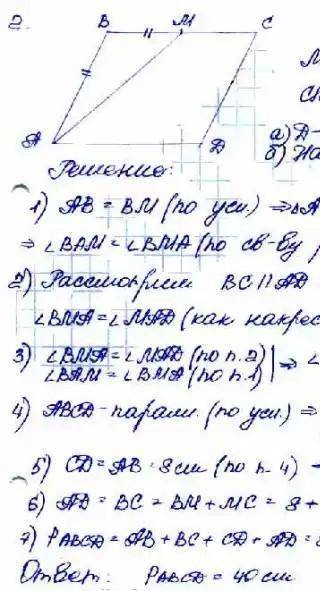 2.
B M C
M
A D
а) D-
б) На
Решение:
1) AB = BM (по усл.) ⇒ ΔA
⇒ ∠BAM = ∠BMA (по св-ву р
2) Рассмотрим BC || AD
∠BMA = ∠MAD (как накрес
3) ∠BMA = ∠MAD (по п. 2) | ⇒ ∠
∠BAM = ∠BMA (по п. 1)
4) ABCD - паралл. (по усл.) ⇒
5) CD = AB = 8 см (по п. 4)
6) AD = BC = BM + MC = 8 +
7) PABCD = AB + BC + CD + AD =
Ответ: PABCD = 40 см